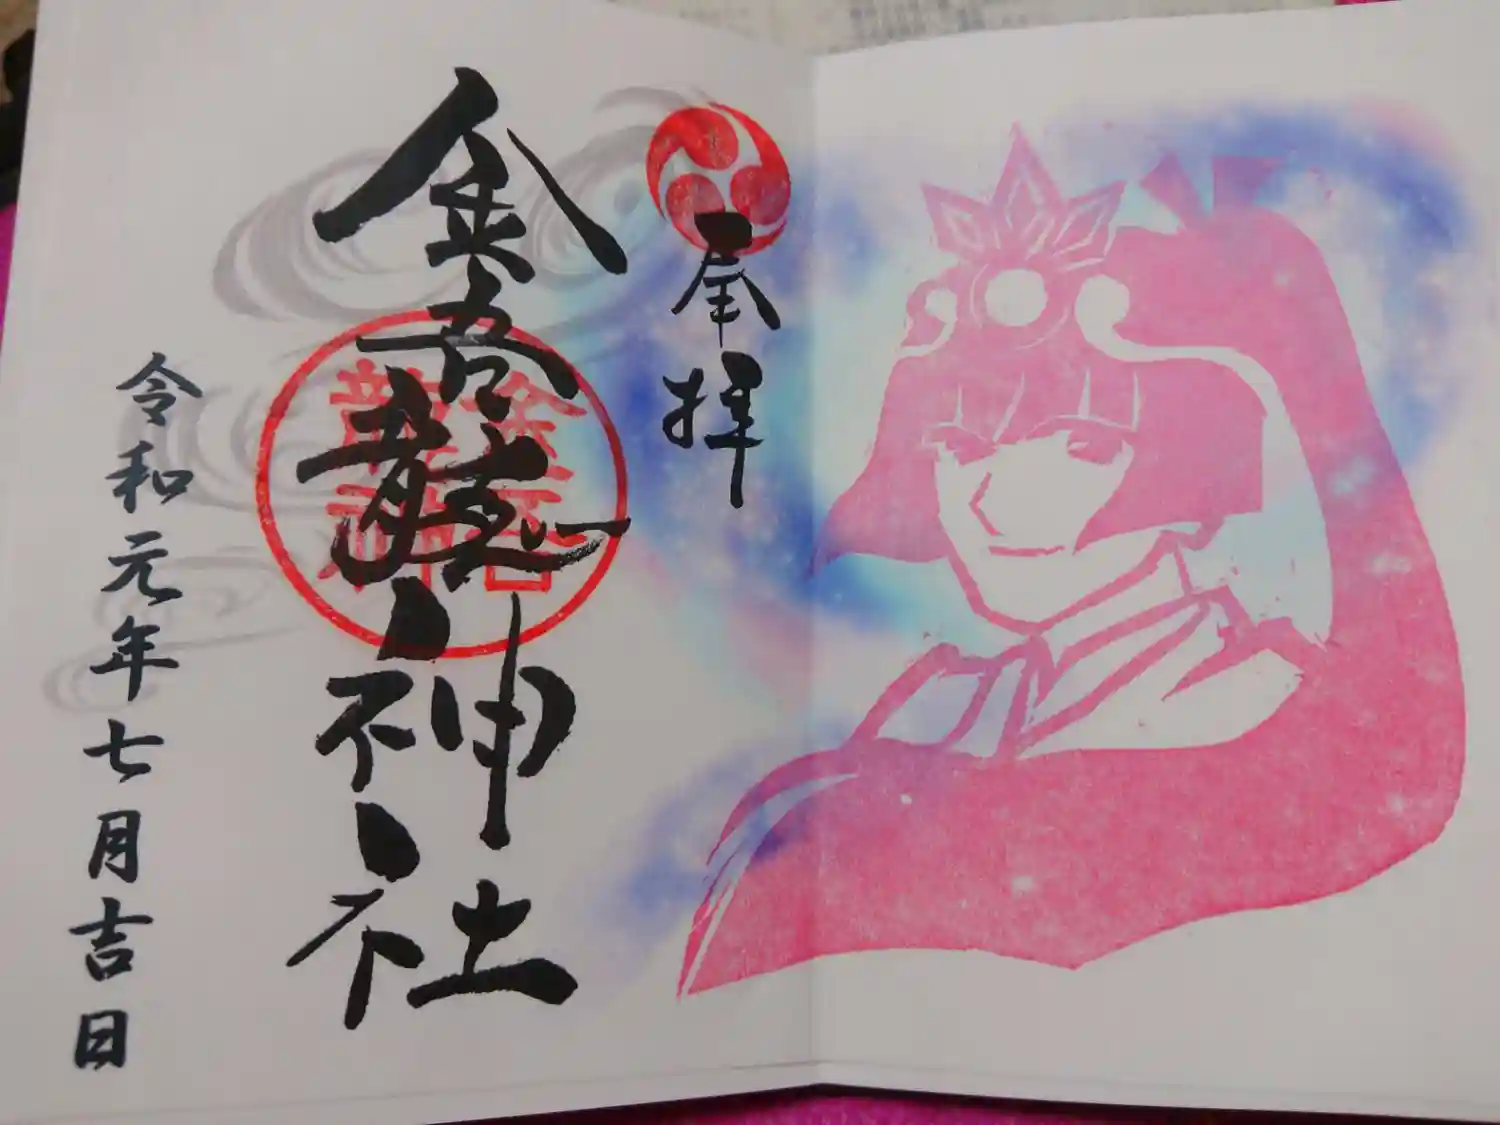 奉拝
金吾龍神社
令和元年七月吉日